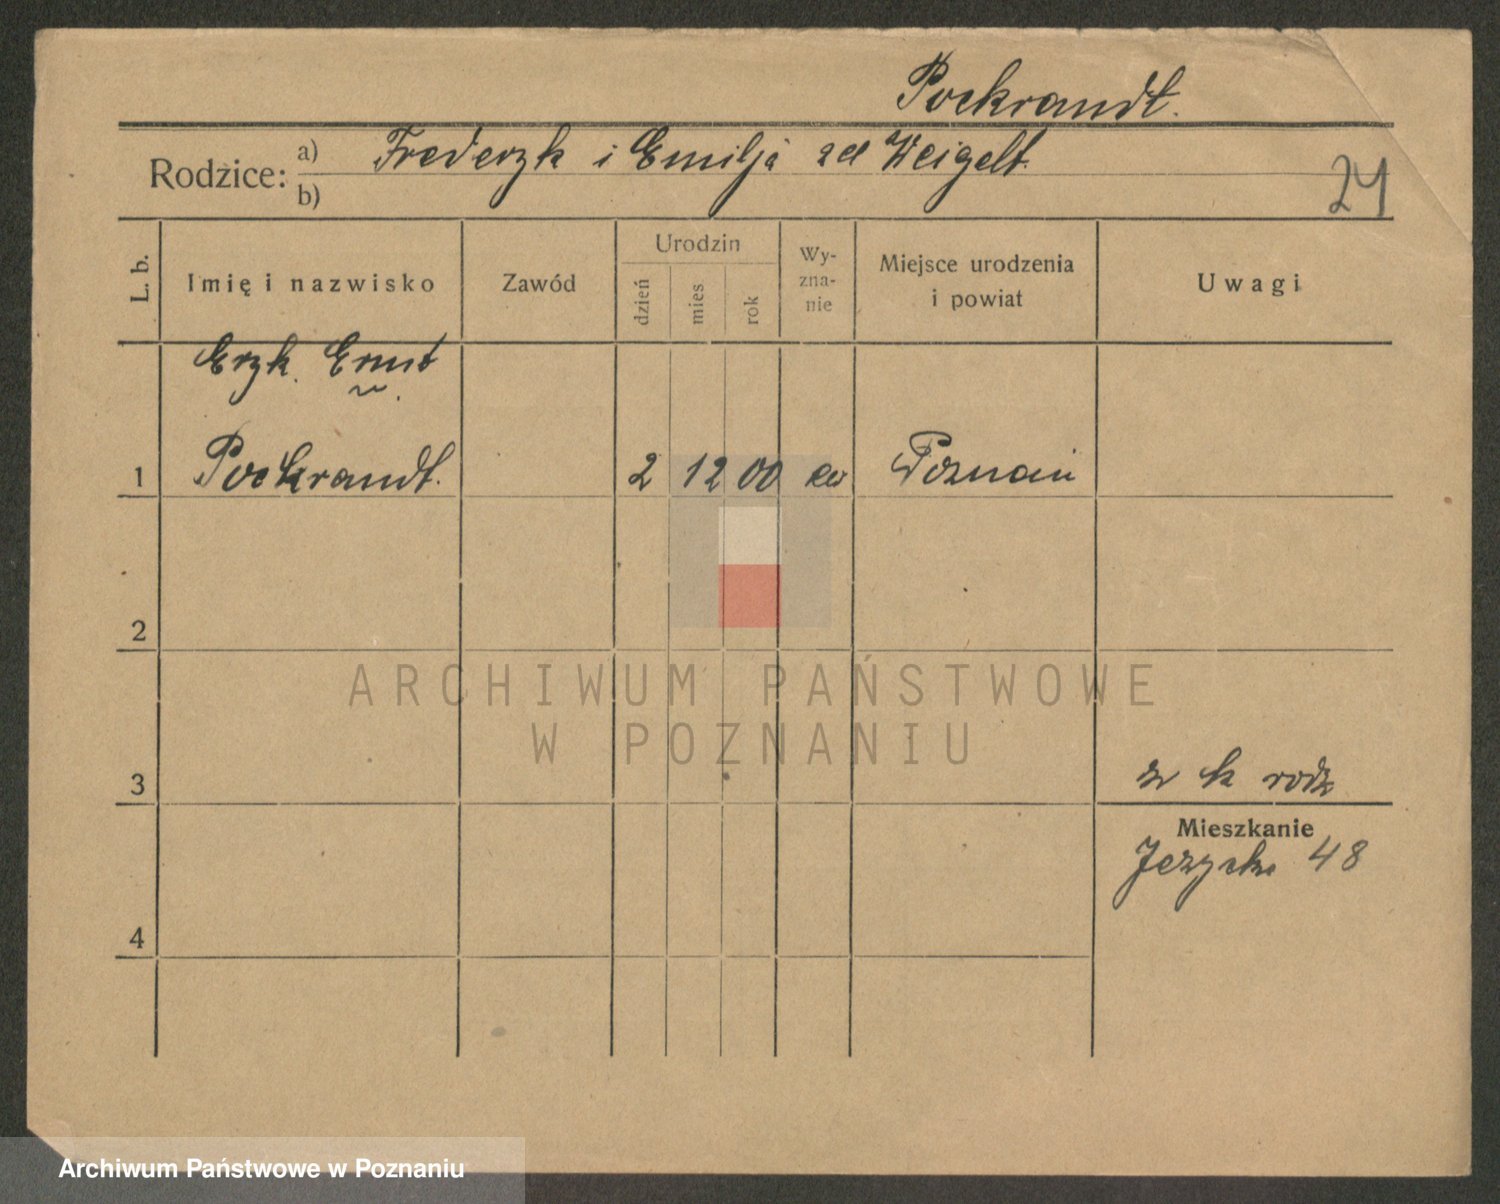 Pockrandt.
Rodzice: a) Frederyk i Emilja Weigelt.
b)
24
L. b.
Imię i nazwisko
Zawód
Urodzin
dzień
mies
rok
Wy-
zna-
nie
Miejsce urodzenia
i powiat
Uwagi
Eryk. Ernst
1 Pockrandt. 2 12 00 ew Poznań
2
ARCHIWUM PAŃSTWOWE
W POZNANIU
3
k rodz
Mieszkanie
Jezycka 48
4
Archiwum Państwowe w Poznaniu